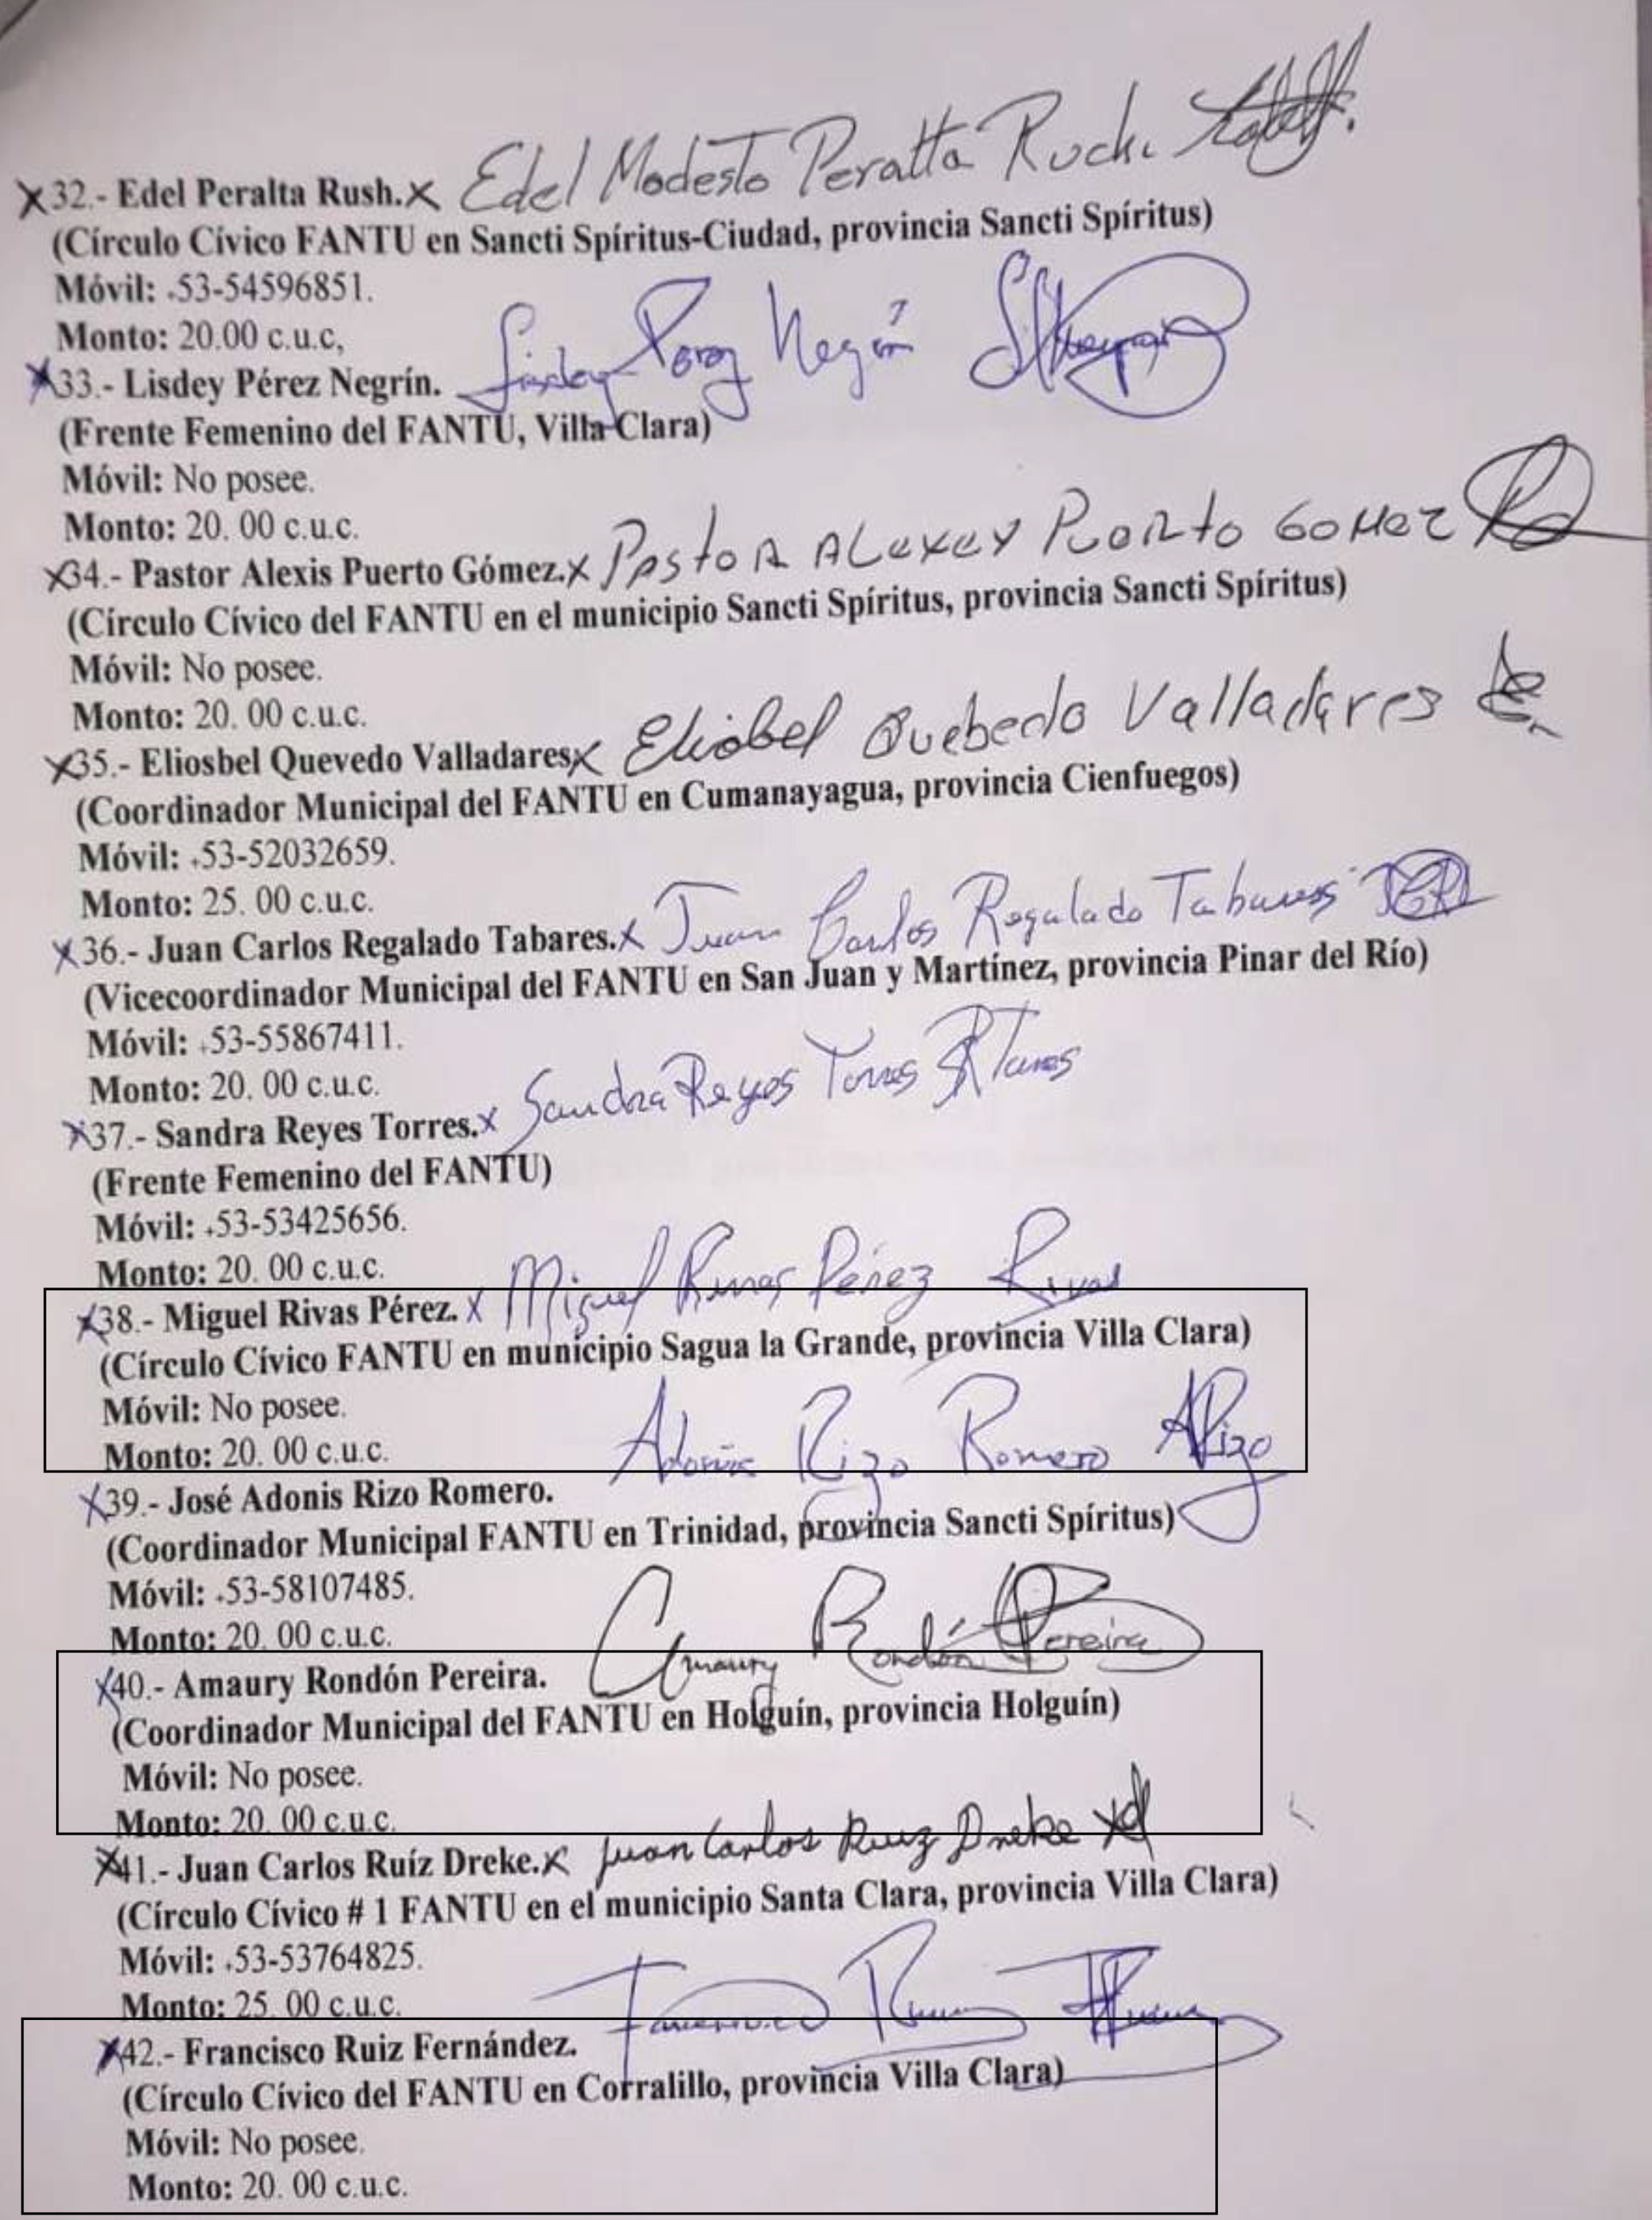 X32.- Edel Peralta Rush.X Edel Modesto Peralta Ruchi
(Círculo Cívico FANTU en Sancti Spíritus-Ciudad, provincia Sancti Spíritus)
Móvil: +53-54596851.
Monto: 20.00 c.u.c,
X33.- Lisdey Pérez Negrín. Lisdey Perez Negrín
(Frente Femenino del FANTU, Villa Clara)
Móvil: No posee.
Monto: 20. 00 c.u.c.
X34.- Pastor Alexis Puerto Gómez.X Pastor Alexey Puerto Gomez
(Círculo Cívico del FANTU en el municipio Sancti Spíritus, provincia Sancti Spíritus)
Móvil: No posee.
Monto: 20. 00 c.u.c.
X35.- Eliosbel Quevedo ValladaresX Eliobel Quebedo Valladares
(Coordinador Municipal del FANTU en Cumanayagua, provincia Cienfuegos)
Móvil: +53-52032659.
Monto: 25. 00 c.u.c.
X36.- Juan Carlos Regalado Tabares.X Juan Carlos Regalado Tabares JCRL
(Vicecoordinador Municipal del FANTU en San Juan y Martínez, provincia Pinar del Río)
Móvil: +53-55867411.
Monto: 20. 00 c.u.c.
X37.- Sandra Reyes Torres.X Sandra Reyes Torres SRTorres
(Frente Femenino del FANTU)
Móvil: +53-53425656.
Monto: 20. 00 c.u.c.
X38.- Miguel Rivas Pérez. X Miguel Rivas Pérez Rivas
(Círculo Cívico FANTU en municipio Sagua la Grande, provincia Villa Clara)
Móvil: No posee.
Monto: 20. 00 c.u.c.
X39.- José Adonis Rizo Romero. Adonis Rizo Romero ARizo
(Coordinador Municipal FANTU en Trinidad, provincia Sancti Spíritus)
Móvil: +53-58107485.
Monto: 20. 00 c.u.c.
X40.- Amaury Rondón Pereira. Amaury Rondón Pereira
(Coordinador Municipal del FANTU en Holguín, provincia Holguín)
Móvil: No posee.
Monto: 20. 00 c.u.c.
X41.- Juan Carlos Ruíz Dreke.X Juan Carlos Ruiz Dreke
(Círculo Cívico # 1 FANTU en el municipio Santa Clara, provincia Villa Clara)
Móvil: +53-53764825.
Monto: 25. 00 c.u.c.
X42.- Francisco Ruiz Fernández. Francisco Ruiz
(Círculo Cívico del FANTU en Corralillo, provincia Villa Clara)
Móvil: No posee.
Monto: 20. 00 c.u.c.